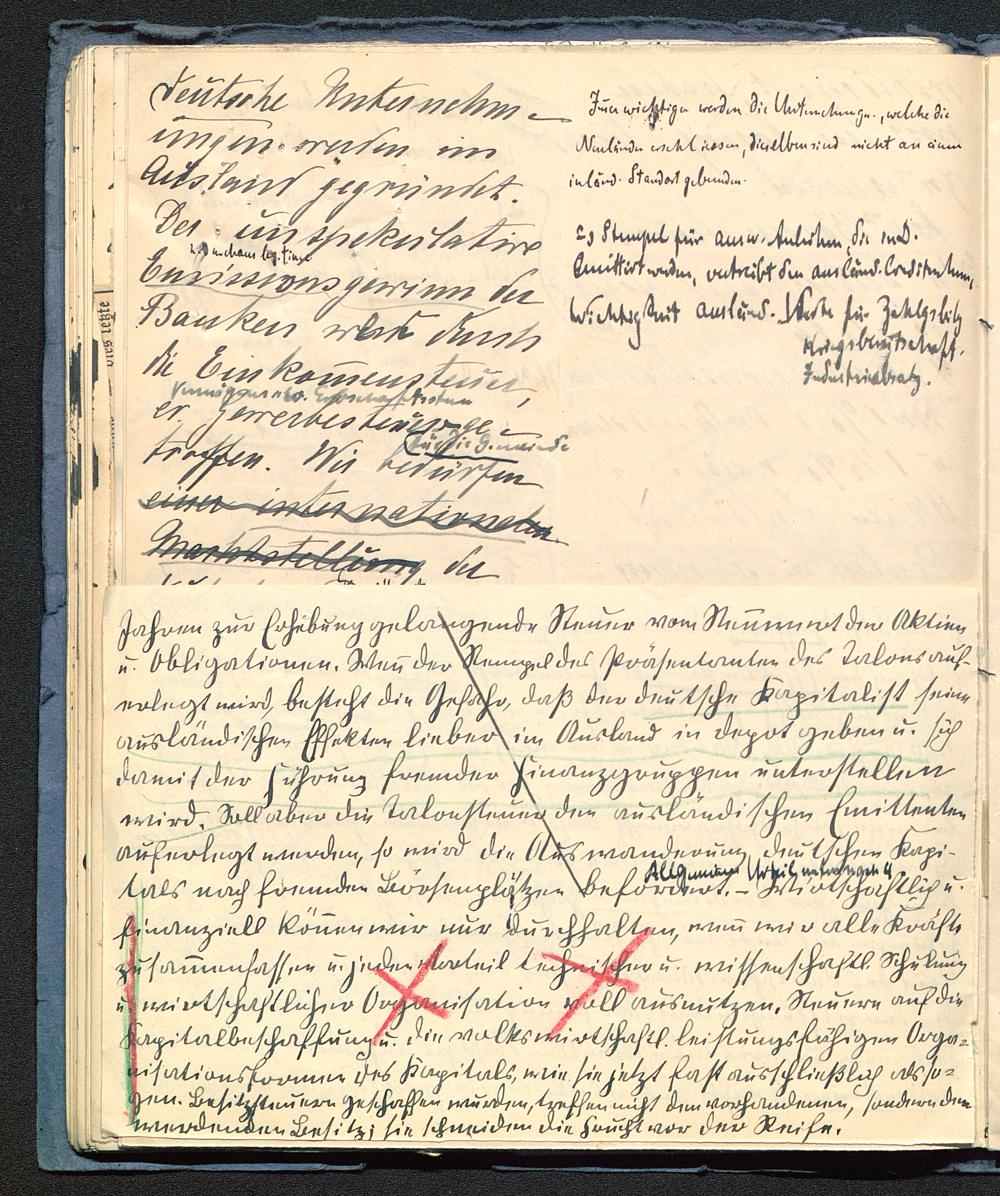 deutsche Unternehm-
ungen werden im
Ausland gegründet.
Der unspekulative
u. durchaus legitime
Emissionsgewinn der
Banken wird durch
die Einkomensteuer,
Vermögensst. Erbschaftssteuer
er gewerbesteuer ge-
für die Gemeinde
troffen. Wir bedürfen
einer internationalen
Marktstellung der
Imer wichtiger werden die Unternehmungn., welche die
Neuländer erschliessen, dieselben sind nicht an einen
inländ. Standort gebunden.
Stempel für ausw. Anleihen, die in D.
Emittiert werden, vertreibt den ausländ. Creditnehmer,
Wichtigkeit ausländ. Werte für Zahlgsbilz
Kriegsbereitschaft.
Industrieabsatz.
Jahren zur Erhebung gelangende Steuer vom Nennwert der Aktien
u. Obligationen. Wenn der Stempel des Präsentanten des Talons auf-
erlegt wird, besteht die Gefahr, daß der deutsche Kapitalist seine
ausländischen Effekten lieber im Ausland in depot geben u. sich
damit der Führung fremder Finanzgruppen unterstellen
wird. Soll aber die Talonsteuer den ausländischen Emittenten
auferlegt werden, so wird die Auswanderung deutschen Kapi-
tals nach fremden Börsenplätzen befördert. – Wirtschaftlich u.
Allgemeine
finanziell könen wir nur durchhalten, wenn wir alle Kräfte
zusammenfassen u. jeden Vorteil technischer u. wissenschaftl. Schulung
u. wirtschaftlicher Organisation voll ausnutzen. Steuern auf die
Kapitalbeschaffung u. die volkswirtschaftl. leistungsfähigen Orga-
nisationsformen des Kapitals, wie sie jetzt fast ausschließlich als so-
gen. Besitzsteuern geschaffen wurden, treffen nicht den vorhandenen, sondern den
werdenden Besitz; sie schneiden die Frucht vor der Reife.